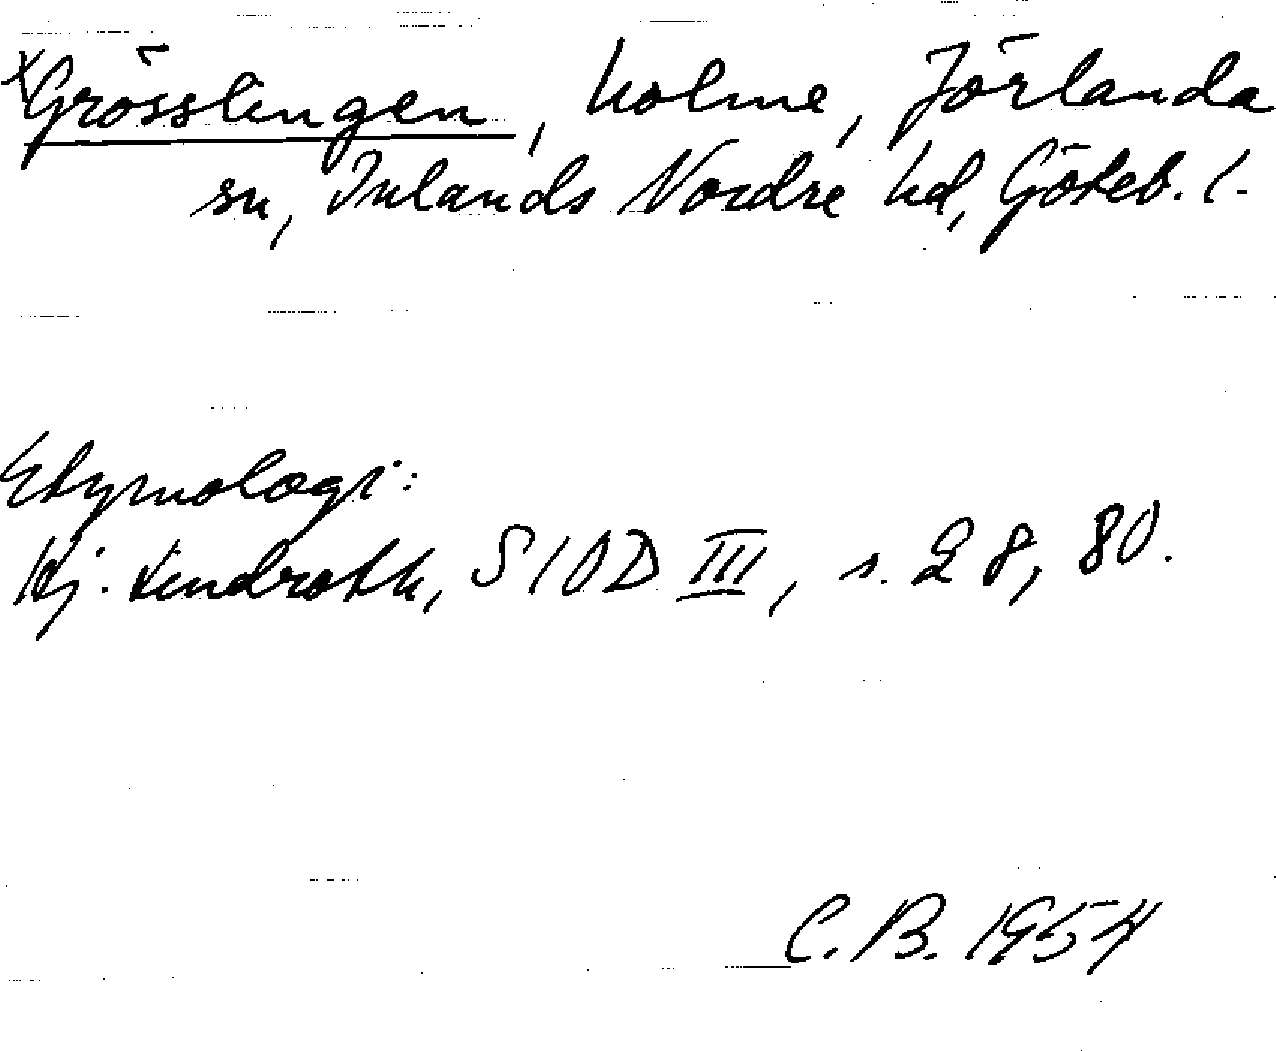 ×Grösslingen, holme, Jörlanda
sn, Inlands Nordre hd, Göteb. l.
Etymologi:
Hj. Lindroth, SIOD III, s. 28, 80.
C. B. 1954